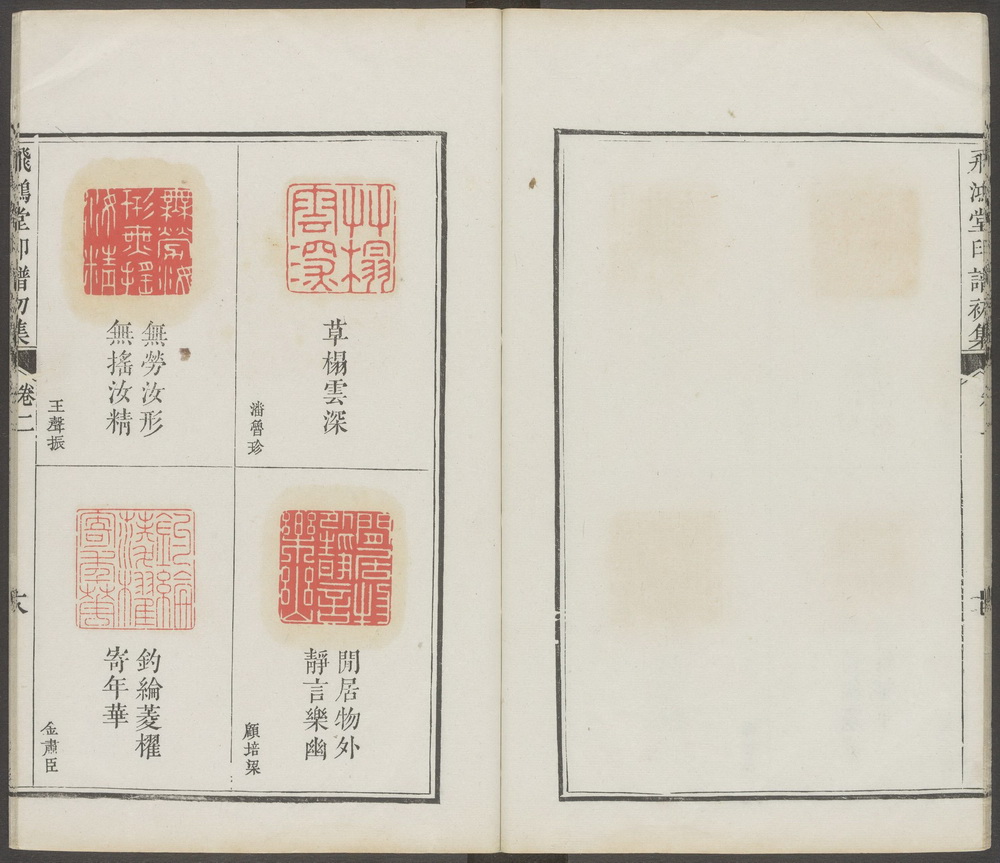 飛鴻堂印譜初集
草榻雲深
潘魯珍
閒居物外
靜言樂幽
顧培渠
無勞汝形
無搖汝精
王聲振
釣綸菱櫂
寄年華
金肅臣
飛鴻堂印譜初集
卷二
六